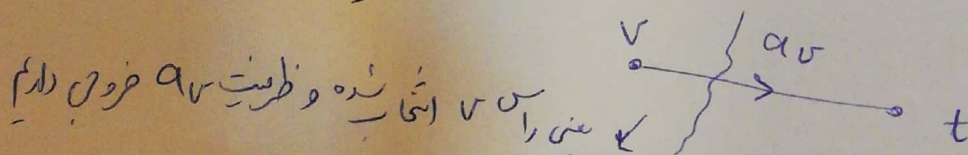 v a_v
یعنی راس v انتخاب شده و ظرفیت a_v خروجی داریم
t